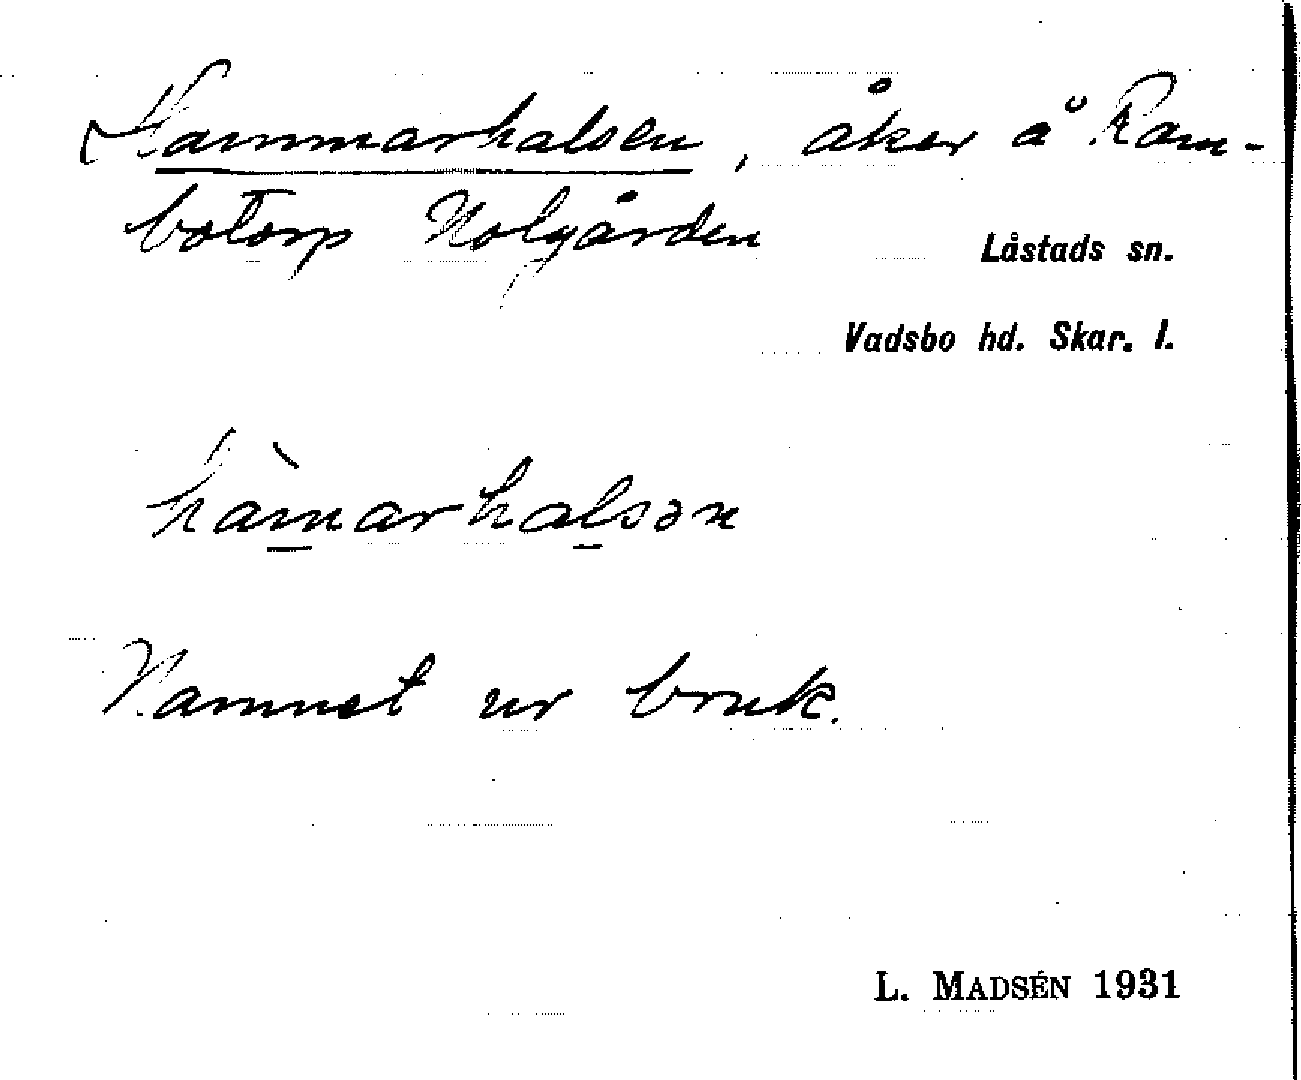 Hammarhalsen, åker å Ram-
botorp Nolgården
Låstads sn.
Vadsbo hd. Skar. l.
hàmarhalsən
Namnet ur bruk.
L. MADSÉN 1931